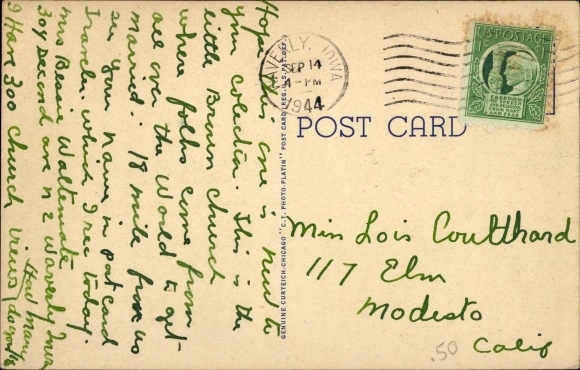 Hope this one is new to
your colection. This is the
little Brown church
where folks come from
all over the World to get-
married. 18 mile from us
see your name in postcard
Travler which I rec today.
Mrs Bessie Waltemate
304 Second ave N E Waverly Iowa
I Have 300 church views How many do you have
WAVERLY, IOWA
SEP 14
4-PM
1944
U.S. POSTAGE
1¢ 1¢
FREEDOM
OF SPEECH
AND RELIGION
FROM WANT
AND FEAR
POST CARD
GENUINE CURTEICH-CHICAGO "C.T. PHOTO-PLATIN" POST CARD (REG. U.S. PAT. OFF.)
Miss Lois Coulthard
117 Elm
Modesto
Calif
.50